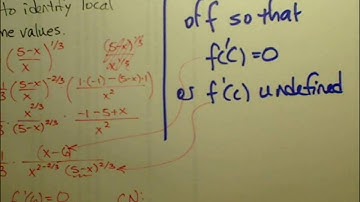 to identify local
ne values.
(5-x / x)^{1/3} (5-x)^{1/3} / x^{1/3}
1/3 (5-x / x)^{-2/3} (x·(-1) - (5-x)·1 / x²)
x^{2/3} / (5-x)^{2/3} · -1-5+x / x²
1/3 · / x^{2-2/3} (5-x)^{2/3}
f'(c) = 0 CN:
of f so that
f'(c) = 0
or f'(c) undefined